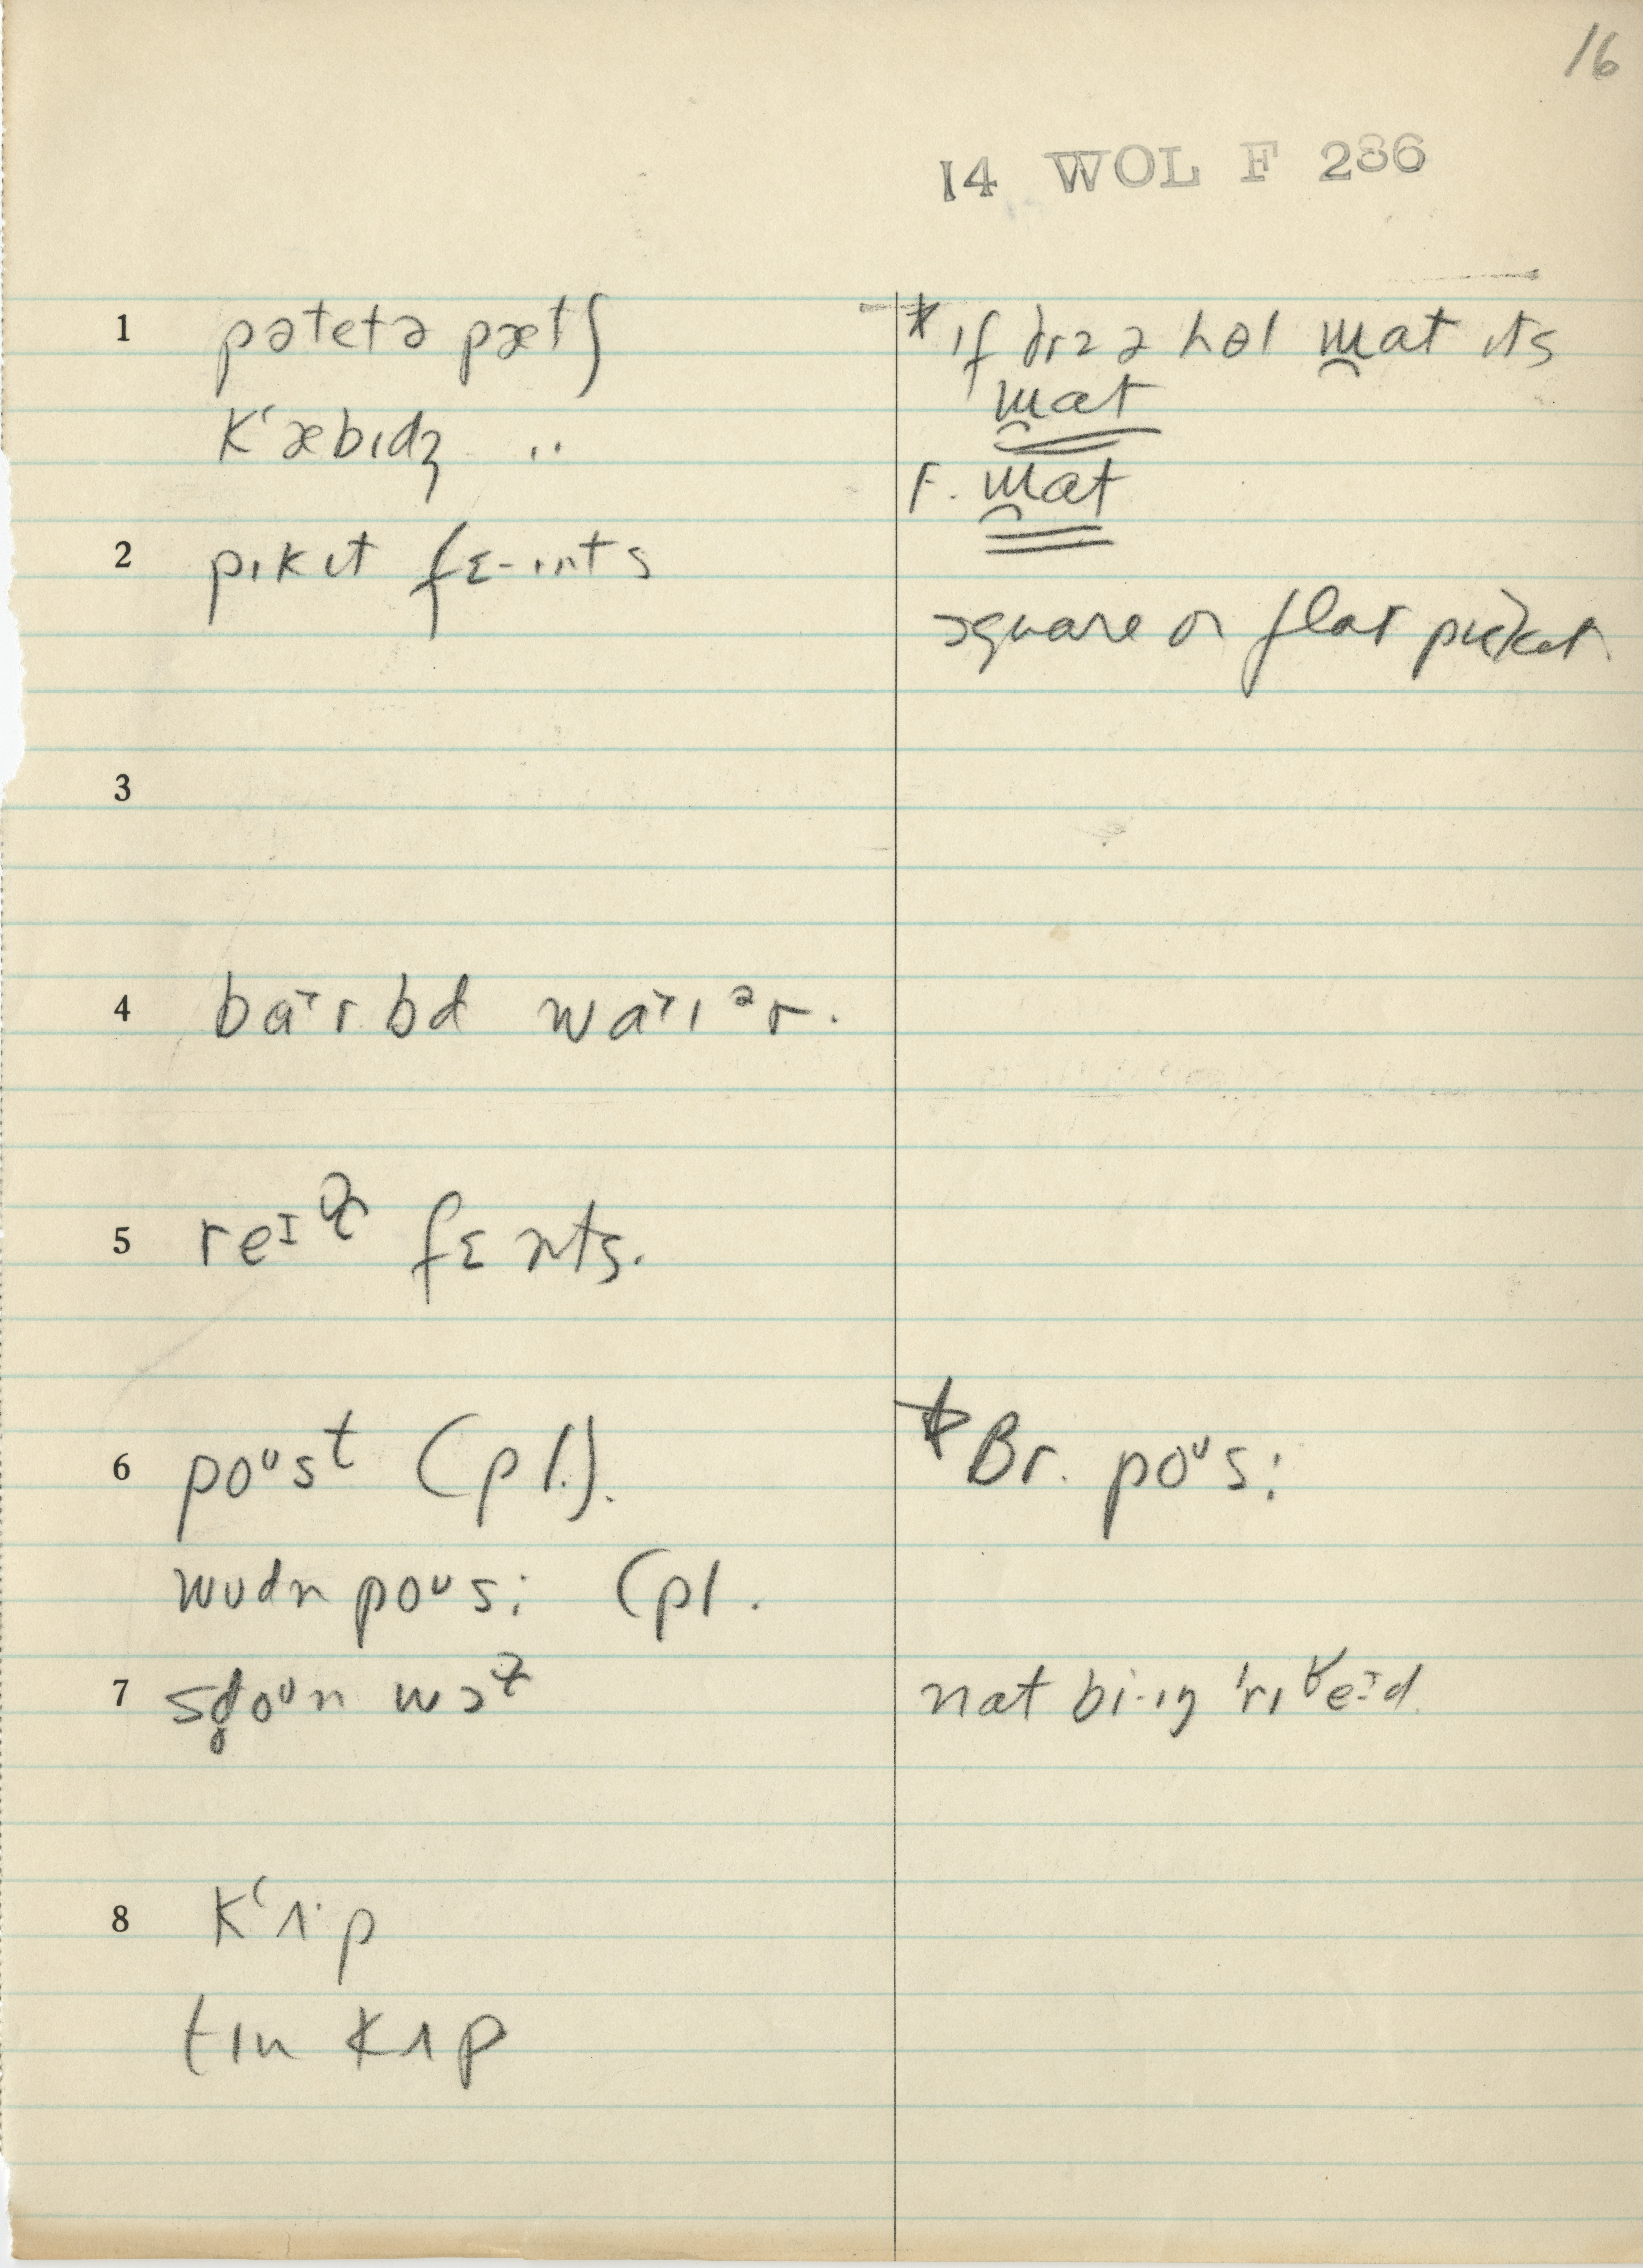 16
14 WOL F 286
1 pətetə pætʃ
k‘æbɪdʒ ..
2 pɪkɪt fɛ-ɪnts
3
4 baɪr bd waɪɪər.
5 reɪ fɛnts.
6 poᴜsᵗ (pl.).
wudn poᴜs: (pl.
7 sdoᴜn wɔ
8 k‘ʌ·p
tɪn kʌp
* ɪf ðɪz ə hol mat ɪts
mat
F. mat
square or flat picket
* Br. poᴜs:
nat bi·ɪŋ